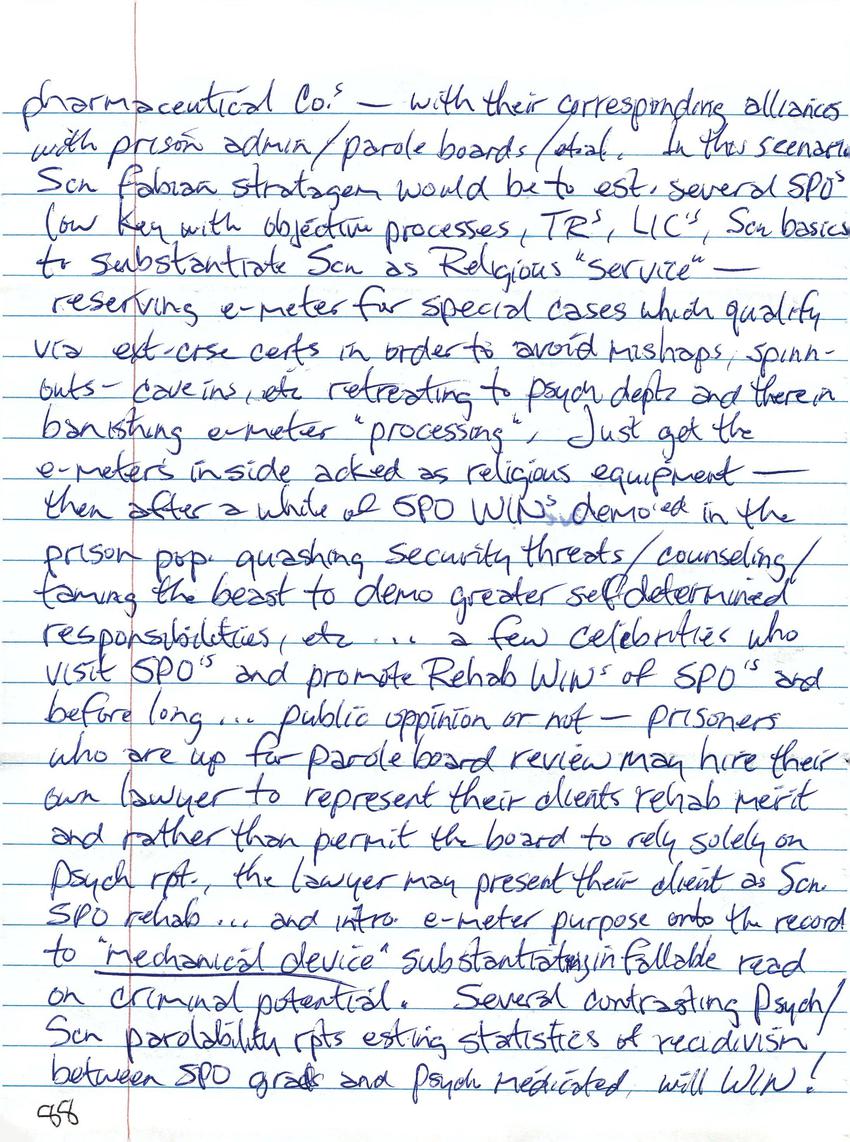 pharmaceutical Co.s — with their corresponding alliances
with prison admin/parole boards/etal. In this scenario
Scn Fabian stratagem would be to est. several SPOs
low key with objective processes, TRs, LIC's, Scn basics
to substantiate Scn as Religious "service" —
reserving e-meter for special cases which qualify
via ext-crse certs in order to avoid mishaps, spinn-
outs - cave ins, etc retreating to psych depts and therein
banishing e-meter "processing". Just get the
e-meters inside acked as religious equipment —
then after a while of SPO WINs demo'ed in the
prison pop. quashing security threats/counseling/
taming the beast to demo greater self determined
responsibilities, etc ... a few celebrities who
visit SPO's and promote Rehab WINs of SPO's and
before long ... public oppinion or not — prisoners
who are up for parole board review may hire their
own lawyer to represent their clients rehab merit
and rather than permit the board to rely solely on
Psych rpt., the lawyer may present their client as Scn.
SPO rehab ... and intro. e-meter purpose onto the record
to "mechanical device" substantiating infallable read
on criminal potential. Several contrasting Psych/
Scn parolability rpts esting statistics of recidivism
between SPO grads and Psych medicated, will WIN!
88